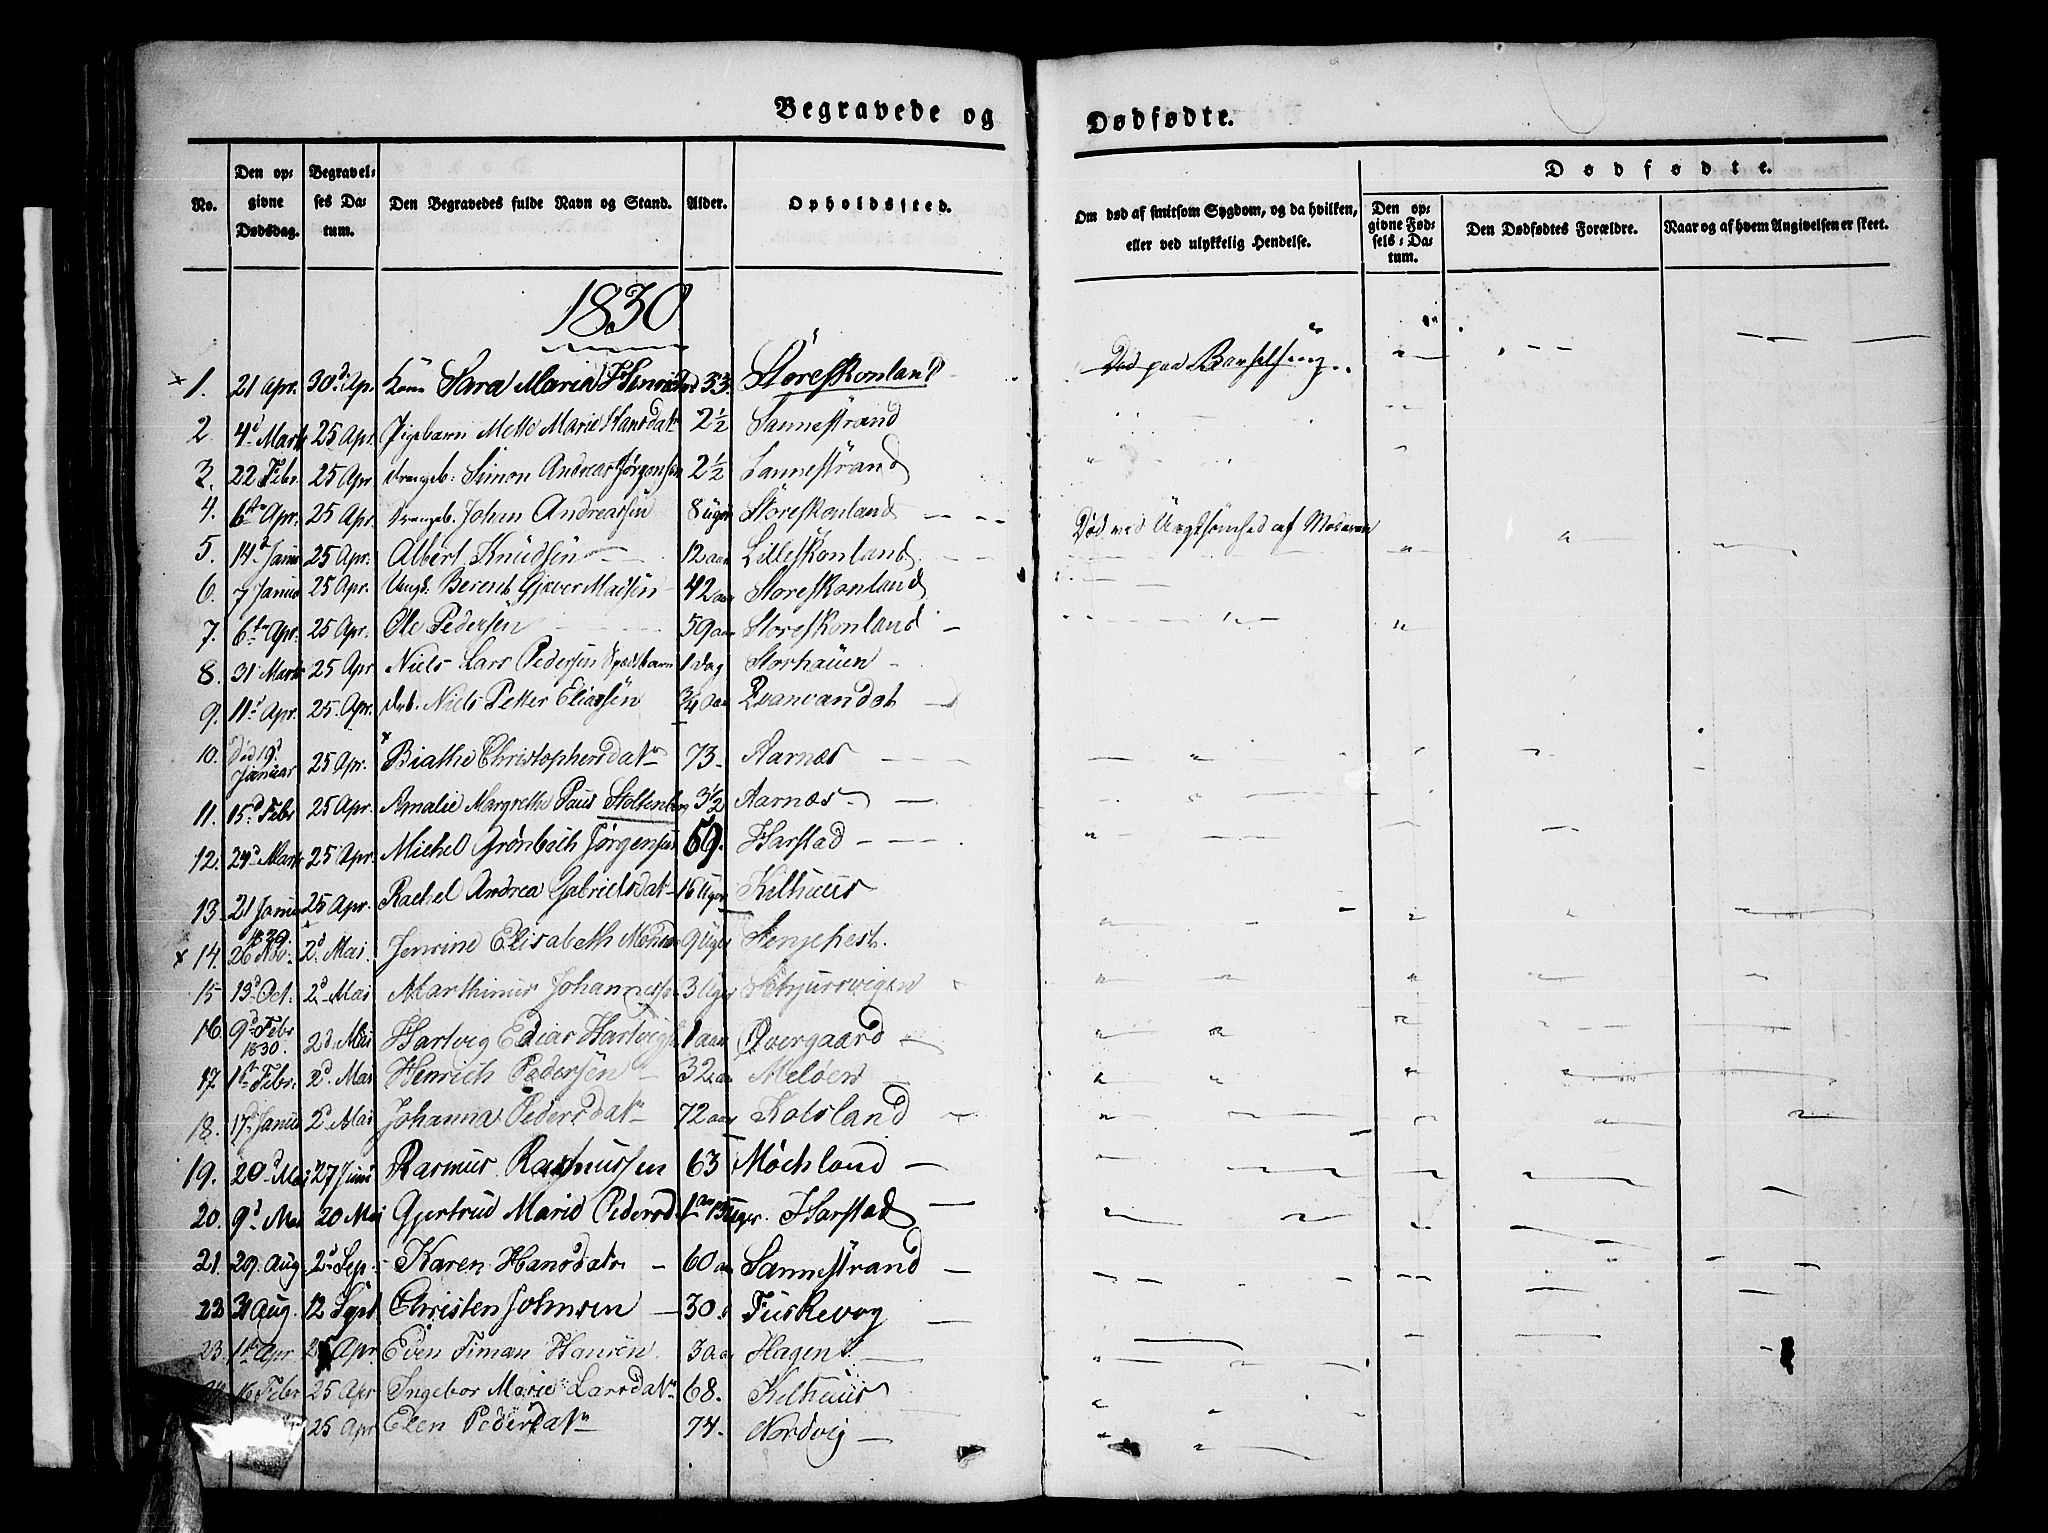 Begravede og Dødfødte.
No. Den opgivne Dødsdag. Begravelses Datum. Den Begravedes fulde Navn og Stand. Alder. Opholdssted. Om død af smitsom Sygdom, og da hvilken, eller ved ulykkelig Hendelse. Dødfødte. Den opgivne Fødsels-Datum. Den Dødfødtes Forældre. Naar og af hvem Angivelsen er skeet.
1830
1. 21 Apr. 30d Apr. Kone Sara Maria 33. Storeskonland Død paa Barselseng
2. 4d Marts 25 Apr. Pigebarn Mette Marie Hansdatr 2½ Sannestrand
3. 22 Febr 25 Apr Drengeb: Simon Andreas Jørgensen 2½ Sannestrand
4. 6te Apr. 25 Apr. Drengeb. Johan Andreassen 8 Uger Storeskonland Død ved Uagtsomhed af Moderen
5. 14d Janu 25 Apr. Albert Knudsen 12 aar Lilleskonland
6. 7 Janu 25 Apr. Ungk. Berent Gjæver Madsen 42 aar Storeskonland
7. 6te Apr. 25 Apr. Ole Pedersen 59 aar Storeskonland
8. 31 Marts 25 Apr Niels Lars Pedersen Spædbarn 1 dag Storhauen
9. 11d Apr. 25. Apr. Drb. Niels Petter Eliassen ¾ Aar Qvanvandet
10. Did 19d Januar 25 Apr. Biathe Christophersdatr 73 Aarnæs
11. 15d Febr 25 Apr. Amalie Margrethe Paus Stoltenberg 3½ Aarnæs
12. 24d Marts 25 Apr. Michel Grønbech Jørgensen 59. Harstad
13. 21 Janu 25 Apr. Rachel Andrea Gabrielsdatr 16 Uger Kilhuus
14. 1829 26 Nov. 2d Mai. Jenrine Elisabeth 9 Uger
15 19d Oct. 2d Mai Marthinus Johannessen 3 Uger
16. 9d Febr 1830. 2d Mai Hartvig Edias Hartvigs 1 aar Øvergaard
17. 1ste Febr: 2d. Mai Henrich Pedersen 32 aar Meløen
18. 17d Janu 2d Mai Johanna Pedersdatr 72 aar Kolsland
19. 20d Mai 27 Juni Rasmus Rasmussen 63 Møchland
20. 9d Mai 20 Mai Gjertrud Marie Pedersd 1 aar 13 Uger. Harstad
21. 29. Aug. 2d Sep. Karen Hansdatr 60 aar Sannestrand
22 31 Aug. 12 Sept Christen Johnsen 30. Fuskevog
23. 1ste Apr 25 Apr. Eden Timan Hansen 3 aar Hagen
24 16 Febr 25 Apr Ingebor Marie Larsdatr 68. Kilhuus
25 Apr Elen Pedersdatr 74. Nordvig